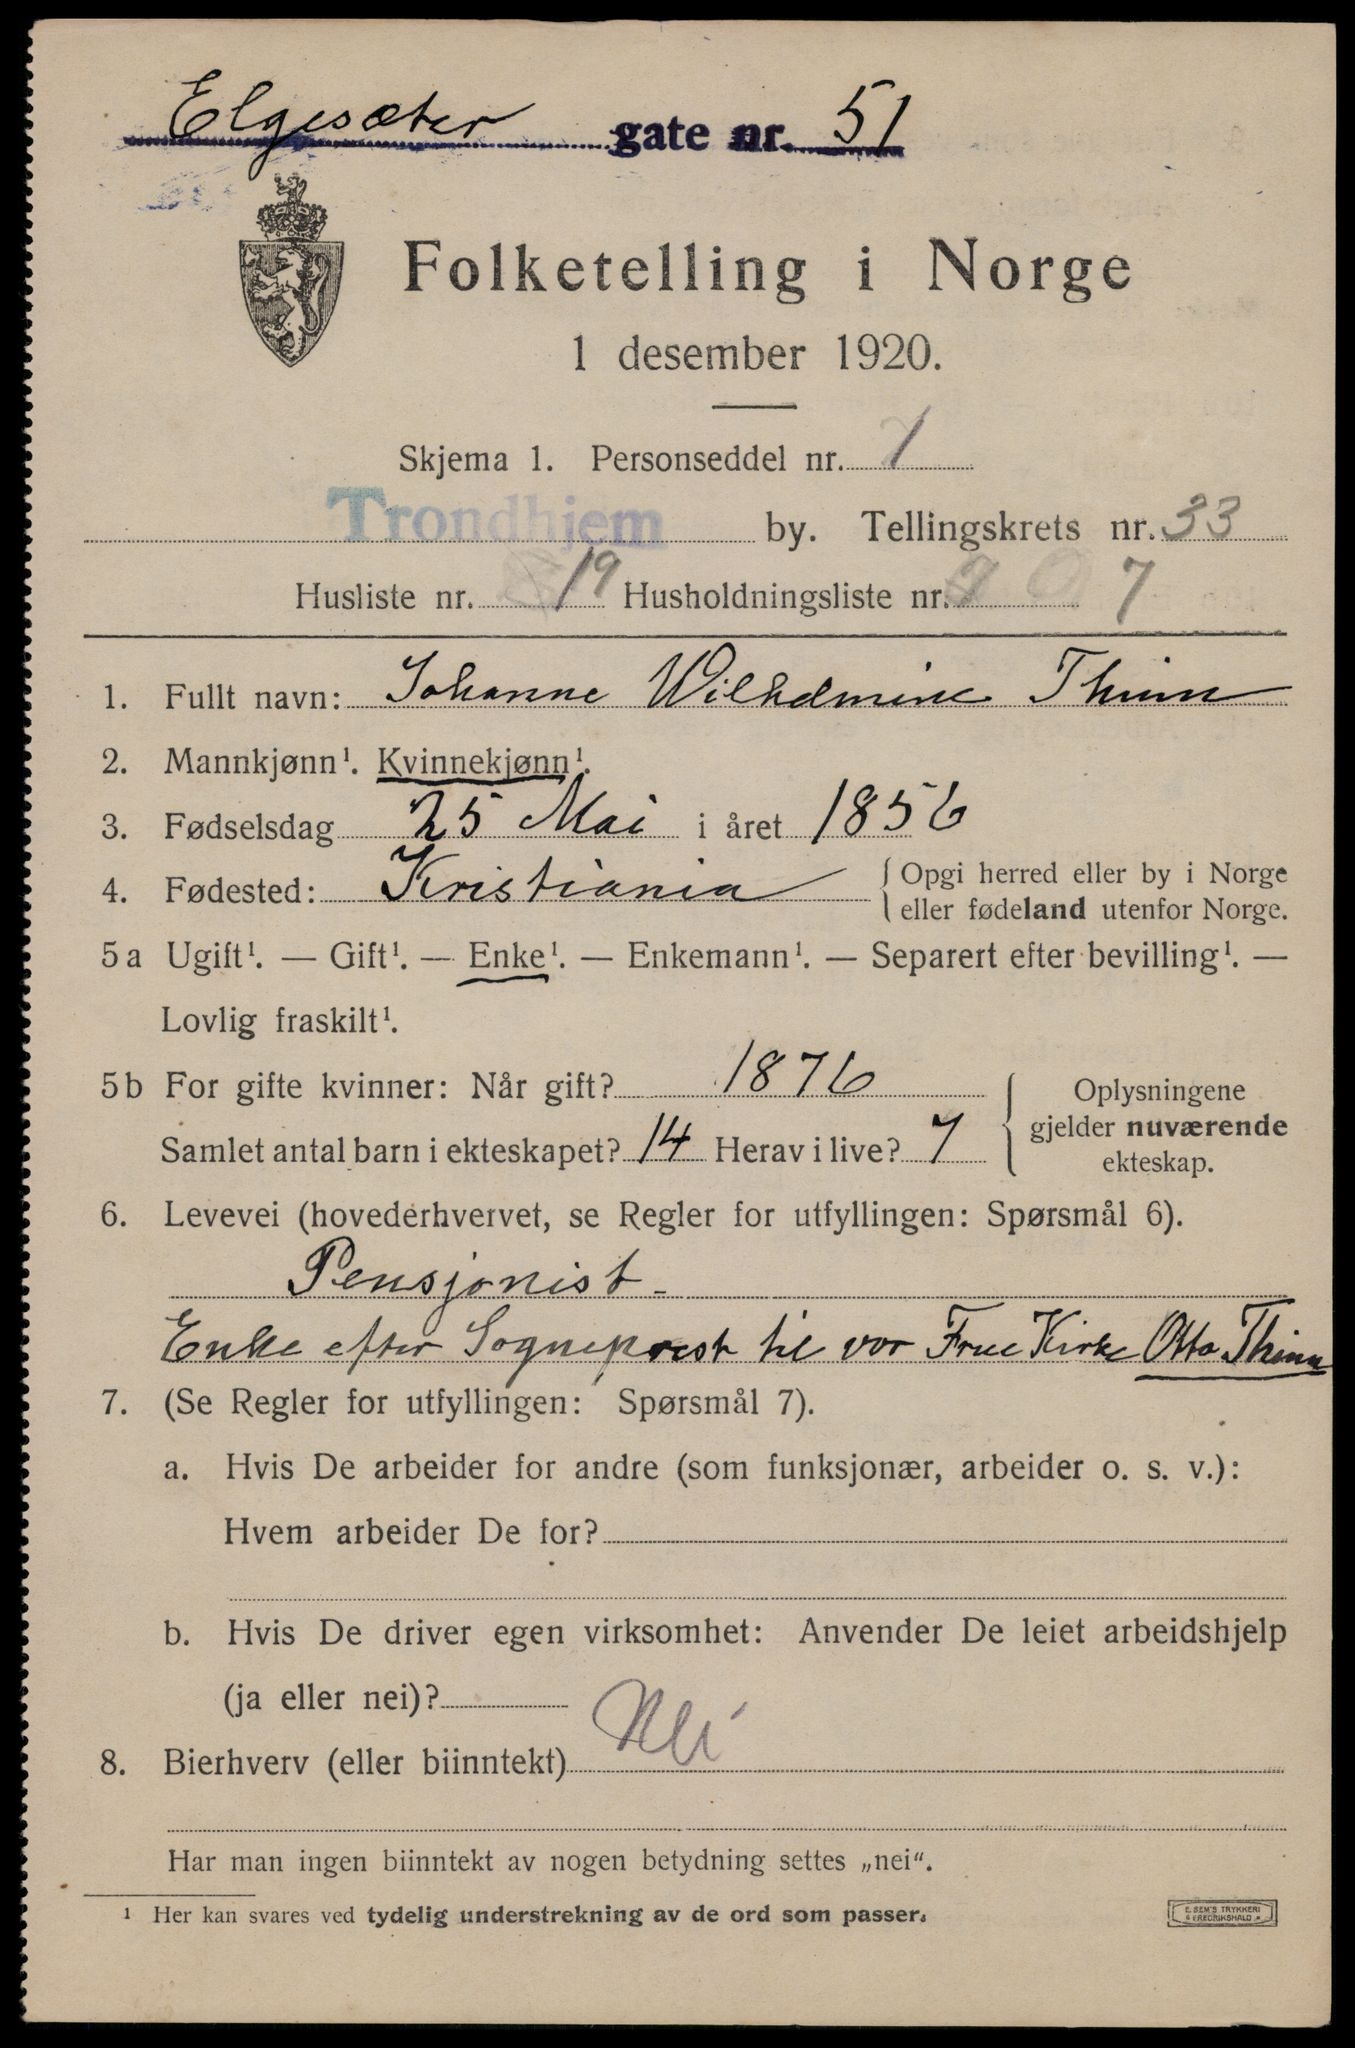 Elgesæter gate nr. 51
Folketelling i Norge
1 desember 1920.
Skjema 1. Personseddel nr. 1
Trondhjem by. Tellingskrets nr. 33
Husliste nr. 19 Husholdningsliste nr. 7
1. Fullt navn: Johanne Wilhelmine Thinn
2. Mannkjønn¹. Kvinnekjønn¹.
3. Fødselsdag 25 Mai i året 1856
4. Fødested: Kristiania { Opgi herred eller by i Norge
eller fødeland utenfor Norge.
5a Ugift¹. — Gift¹. — Enke¹. — Enkemann¹. — Separert efter bevilling¹. —
Lovlig fraskilt¹.
5b For gifte kvinner: Når gift? 1876
Samlet antal barn i ekteskapet? 14 Herav i live? 7
Oplysningene
gjelder nuværende
ekteskap.
6. Levevei (hovederhvervet, se Regler for utfyllingen: Spørsmål 6).
Pensjonist -
Enke efter Sogneprest til vor Frue Kirke Otto Thinn
7. (Se Regler for utfyllingen: Spørsmål 7).
a. Hvis De arbeider for andre (som funksjonær, arbeider o. s. v.):
Hvem arbeider De for?
b. Hvis De driver egen virksomhet: Anvender De leiet arbeidshjelp
(ja eller nei)?
8. Bierhverv (eller biinntekt) Nei
Har man ingen biinntekt av nogen betydning settes „nei“.
¹ Her kan svares ved tydelig understrekning av de ord som passer.
E. SEM'S TRYKKERI
FREDRIKSHALD